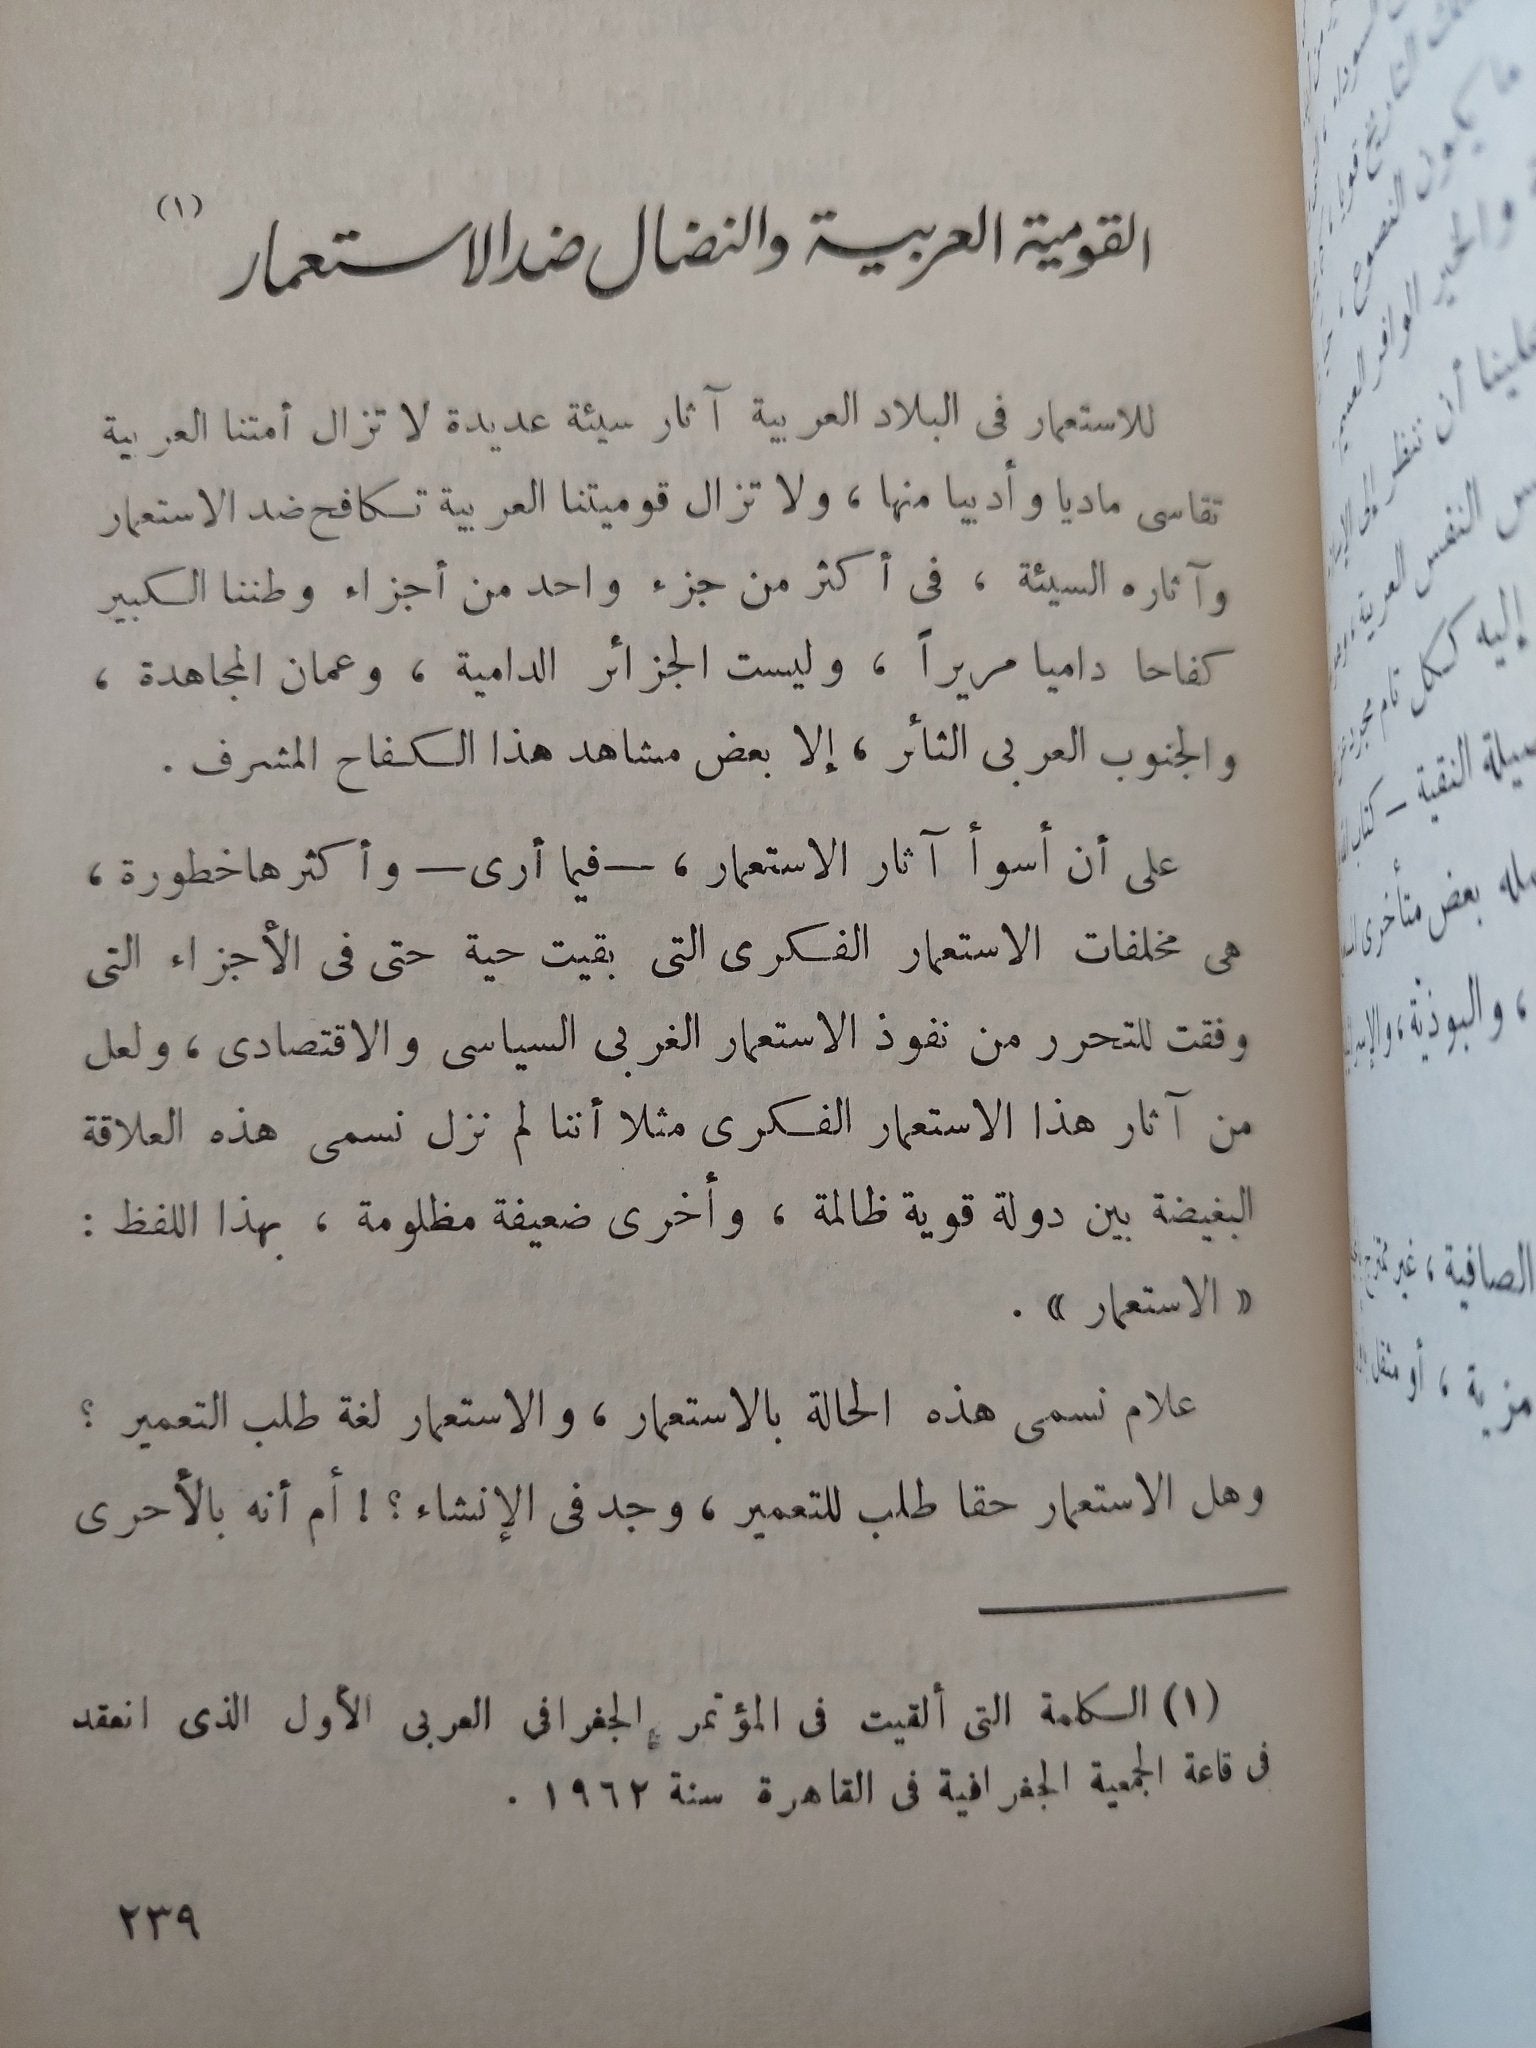 القومية العربية والنضال ضد الاستعمار (١)
للاستعمار فى البلاد العربية آثار سيئة عديدة لا تزال أمتنا العربية
تقاسى ماديا وأدبيا منها ، ولا تزال قوميتنا العربية تكافح ضد الاستعمار
وآثاره السيئة ، فى أكثر من جزء واحد من أجزاء وطننا الكبير
كفاحا داميا مريراً ، وليست الجزائر الدامية ، وعمان المجاهدة ،
والجنوب العربى الثائر ، إلا بعض مشاهد هذا الكفاح المشرف .
على أن أسوأ آثار الاستعمار ، — فيما أرى — وأكثرها خطورة ،
هى مخلفات الاستعمار الفكرى التى بقيت حية حتى فى الأجزاء التى
وفقت للتحرر من نفوذ الاستعمار الغربى السياسى والاقتصادى ، ولعل
من آثار هذا الاستعمار الفكرى مثلا أننا لم نزل نسمى هذه العلاقة
البغيضة بين دولة قوية ظالمة ، وأخرى ضعيفة مظلومة ، بهذا اللفظ :
« الاستعمار » .
علام نسمى هذه الحالة بالاستعمار ، والاستعمار لغة طلب التعمير ؟
وهل الاستعمار حقا طلب للتعمير ، وجد فى الإنشاء ؟ ! أم أنه بالأحرى
(١) الكلمة التى ألقيت فى المؤتمر الجغرافى العربى الأول الذى انعقد
فى قاعة الجمعية الجغرافية فى القاهرة سنة ١٩٦٢ .
٢٣٩
ما يكون النضوج
والخير الوافد العميم
علينا أن ننظر إلى
النفس العربية
إليه ككل تام
النقية – كتاب
بعض متأخرى
، والبوذية ،
الصافية ، غير
مزية ، أو مثقل